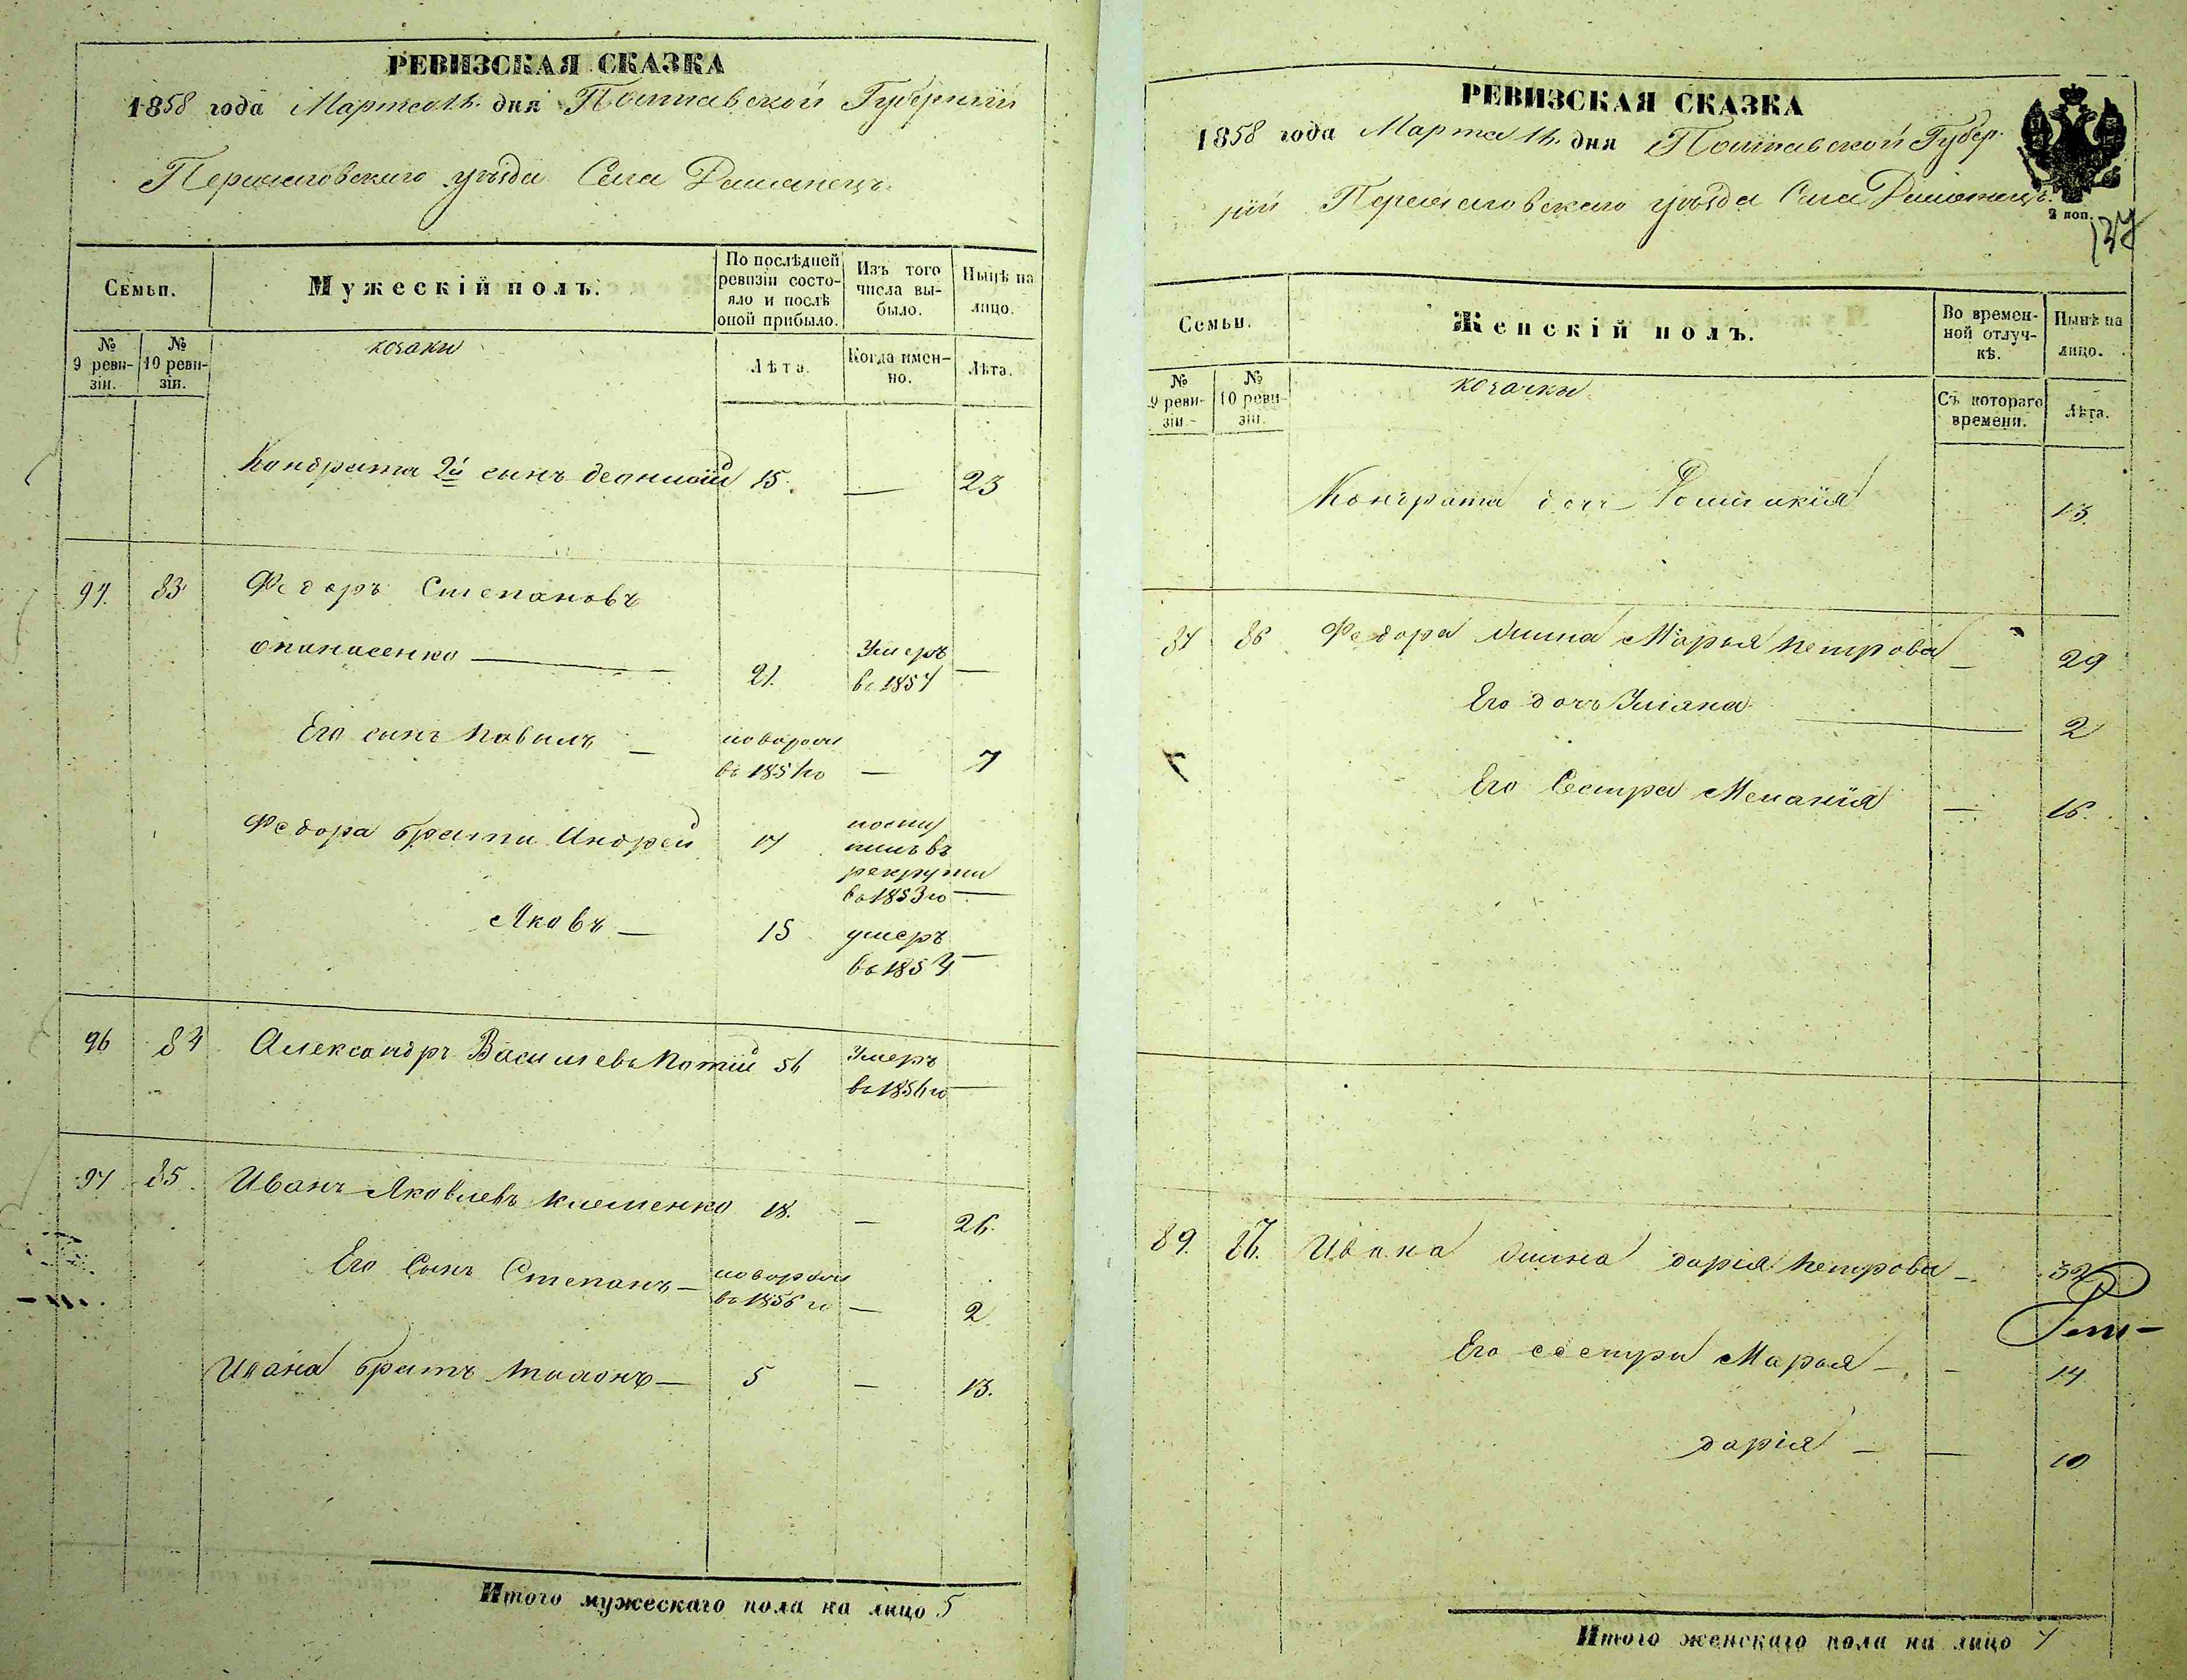 РЕВИЗСКАЯ СКАЗКА
1858 года Марта 14. дня Полтавской Губерніи
Переяславскаго уѣзда Села Дашанецъ
Семьи.
Мужескій полъ.
По послѣдней ревизіи состояло и послѣ оной прибыло.
Изъ того числа выбыло.
Нынѣ на лицо.
№ 9 ревизіи.
№ 10 ревизіи.
козаки
Лѣта.
Когда именно.
Лѣта.
Кондрата 2й сынъ 15. — 23
83 Федоръ Степановъ
опанасенко — 21. Умеръ въ 1857 —
Его сынъ Павилъ — новорож въ 1851го — 7
Федора братъя Андрей 17 поступилъ въ рекруты въ 1853го —
Яковъ — 15 умеръ въ 1854 —
96 84 Александръ Васильевъ Потій 56 Умеръ въ 1856го —
97 85 Иванъ Яковлевъ Клеменко 18. — 26.
Его Сынъ Степанъ — новорож въ 1856го — 2
Ивана братъ — 5 — 13.
Итого мужескаго пола на лицо 5
РЕВИЗСКАЯ СКАЗКА
1858 года Марта 14. дня Полтавской Губер
ніи Переяславскаго уѣзда Села Дашанецъ.
2 коп.
137
Семьи.
Женскій полъ.
Во временной отлучкѣ.
Нынѣ на лицо.
№ 9 ревизіи.
№ 10 ревизіи.
козачки
Съ котораго времени.
Лѣта.
Кондрата доч 13.
86 Федора жина Марья Петрова — 29
Его дочъ Уліяна — 2
Его Сестра Меланія — 16.
89. 87. Ивана жина дарія Петрова — 32
Его сестри Марья — — 14
дарія — — 10
Итого женскаго пола на лицо 7